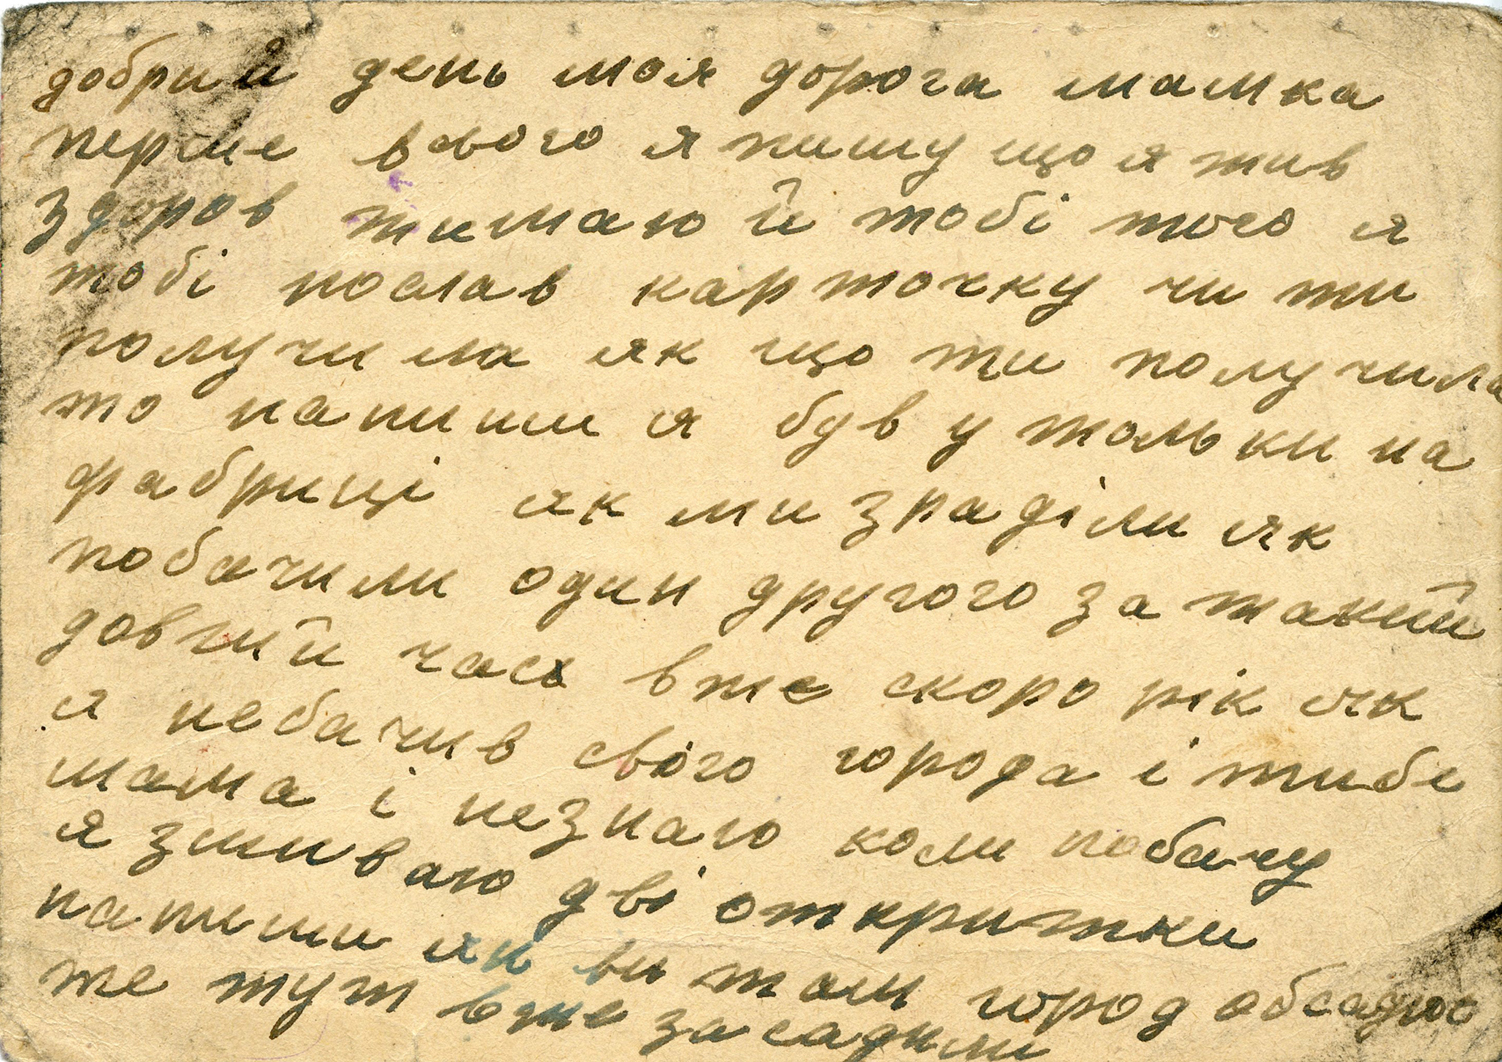 добрий день моя дорога мамка
перше всього я пишу що я жив
здоров жилаю й тобі того я
тобі послав карточку чи ти
получила як що ти получила
то напиши я був у тольки на
фабриці як ми зраділи як
побачили один другого за такий
довгий час вже скоро рік як
я небачив свого города і тибе
мама і незнаю коли побачу
я зшиваю дві откритки
напиши як ви там город обсадио
же тут вже засадили